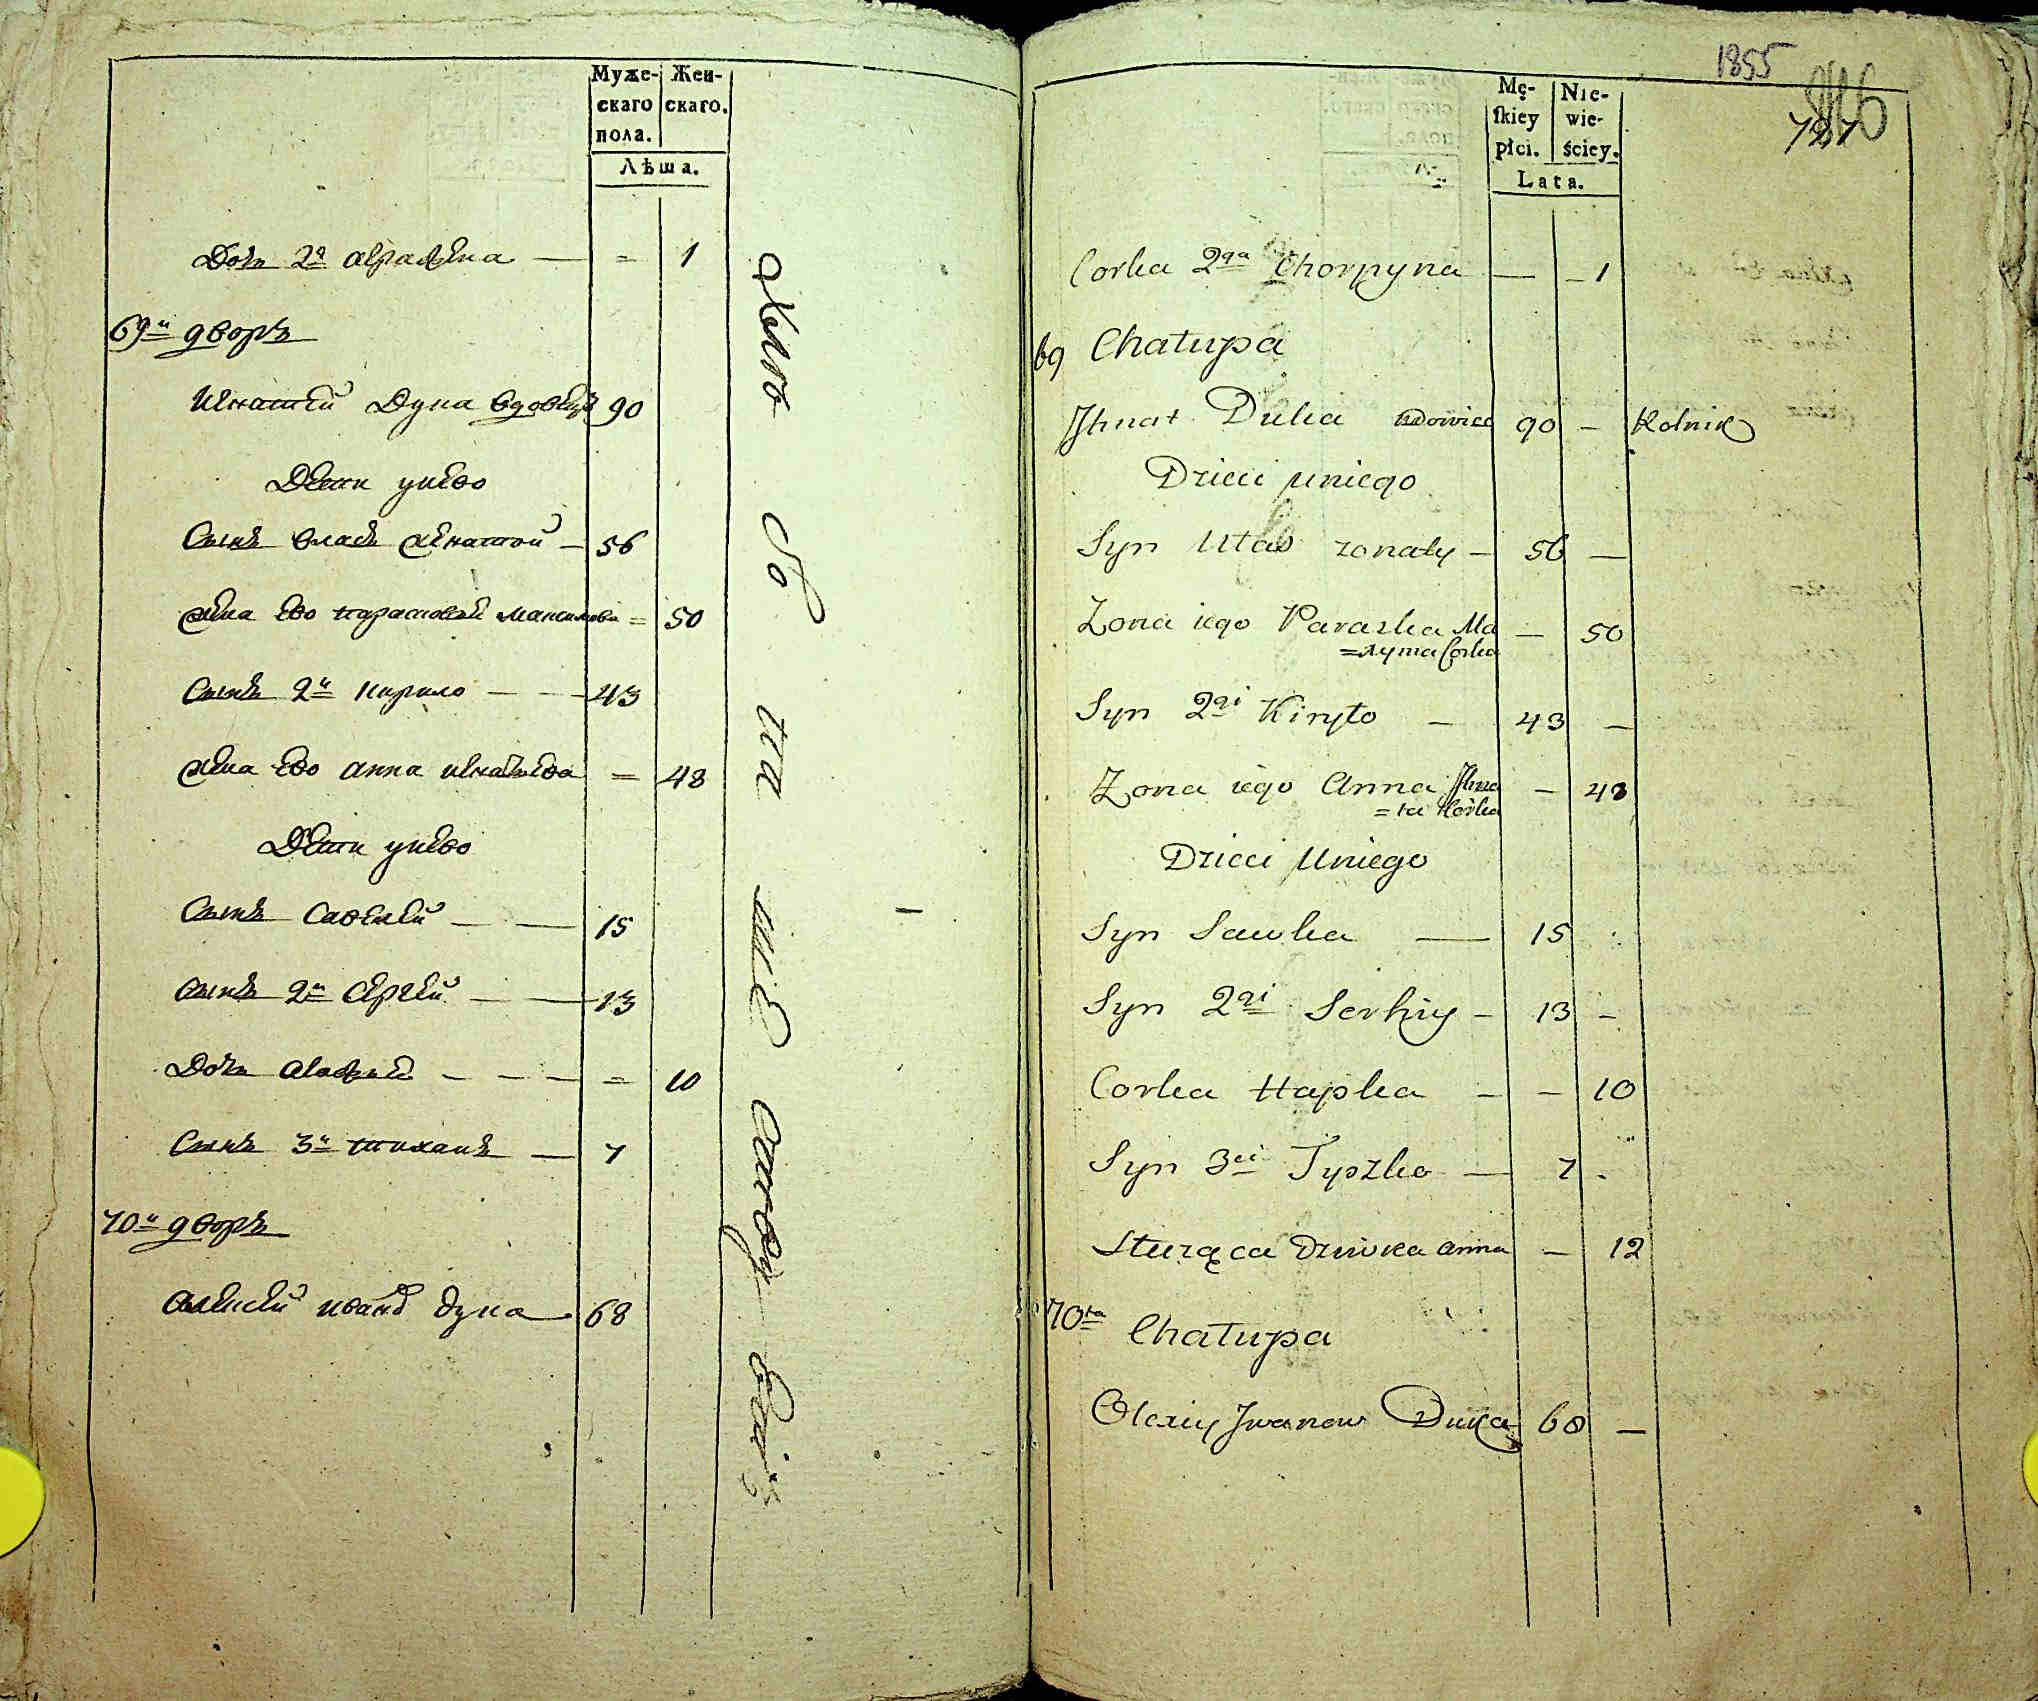 Муже-
скаго
пола.
Жен-
скаго.
Лѣта.
Дочь 2я Афрафена — = 1
69й дворъ
Игнатей Дука вдовецъ 90
Дети унево
Сынъ Власъ женатой — 56
Жена ево Парасковей Максимова = 50
Сынъ 2й Кирило — — 43
Жена ево Анна Игнатьева = 48
Дети унево
Сынъ Савелей — — 15
Сынъ 2й Сергей — — 13
Дочь Агафия — — — = 10
Сынъ 3й Тиханъ — 7
70й дворъ
Алексей Иванов Дука 68
1855
727
Mę-
skiey
płci.
Nie-
wie-
ściey.
Lata.
Corka 2ga Chorpyna — — 1
69 Chałupa
Ihnat Duka wdowiec 90 — Rolnik
Dzieci uniego
Syn Ułas zonaty — 56 —
Zona iego Paraska Ma — 50
=xyma Corka
Syn 2gi Kiryło — 43 —
Zona iego Anna Ihna — 48
=ta Corka
Dzieci Uniego
Syn Sawka — 15
Syn 2gi Serhiy — 13 —
Corka Hapka — — 10
Syn 3ci Tyszko — 7
Służąca Dziwka Anna — 12
70ta Chałupa
Olexiy Iwanow Duka 68 —